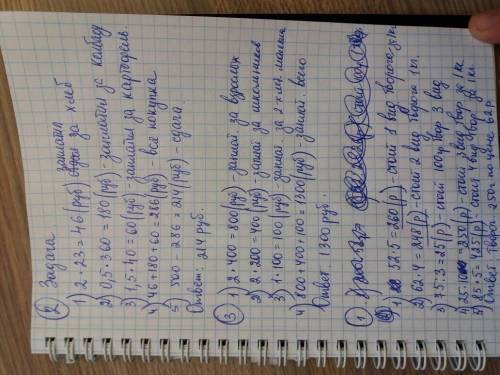 ② Задача
1) 2 · 23 = 46 (руб) заплатил за хлеб
2) 0,5 · 360 = 180 (руб) - заплатил за колбасу
3) 1,5 · 40 = 60 (руб) - заплатил за картофель.
4) 46 + 180 + 60 = 286 (руб) вся покупка
5) 500 - 286 = 214 (руб) - сдача.
Ответ: 214 руб.
③ 1) 2 · 400 = 800 (руб) - заплат. за взрослых
2) 2 · 200 = 400 (руб) - заплат за школьников
3) 1 · 100 = 100 (руб) - заплат. за
4) 800 + 400 + 100 = 1300 (руб) - заплат. всего
Ответ 1300 руб.
①
1) 52 · 5 = 260 (р) - стоит 1 вид творога 1 кг
2) 62 · 4 = 248 (р) - стоит 2 вид творога 1 кг.
3) 75 : 3 = 25 (р) - стоит 100гр твор 3 вид
4) 25 · = 250 (р) - стоит 3 вид твор. за 1 кг
5) 85 · 5 = 425 (р) - стоит 4 вид твор. за 1 кг.
Ответ: творог 250г по цене 62 р